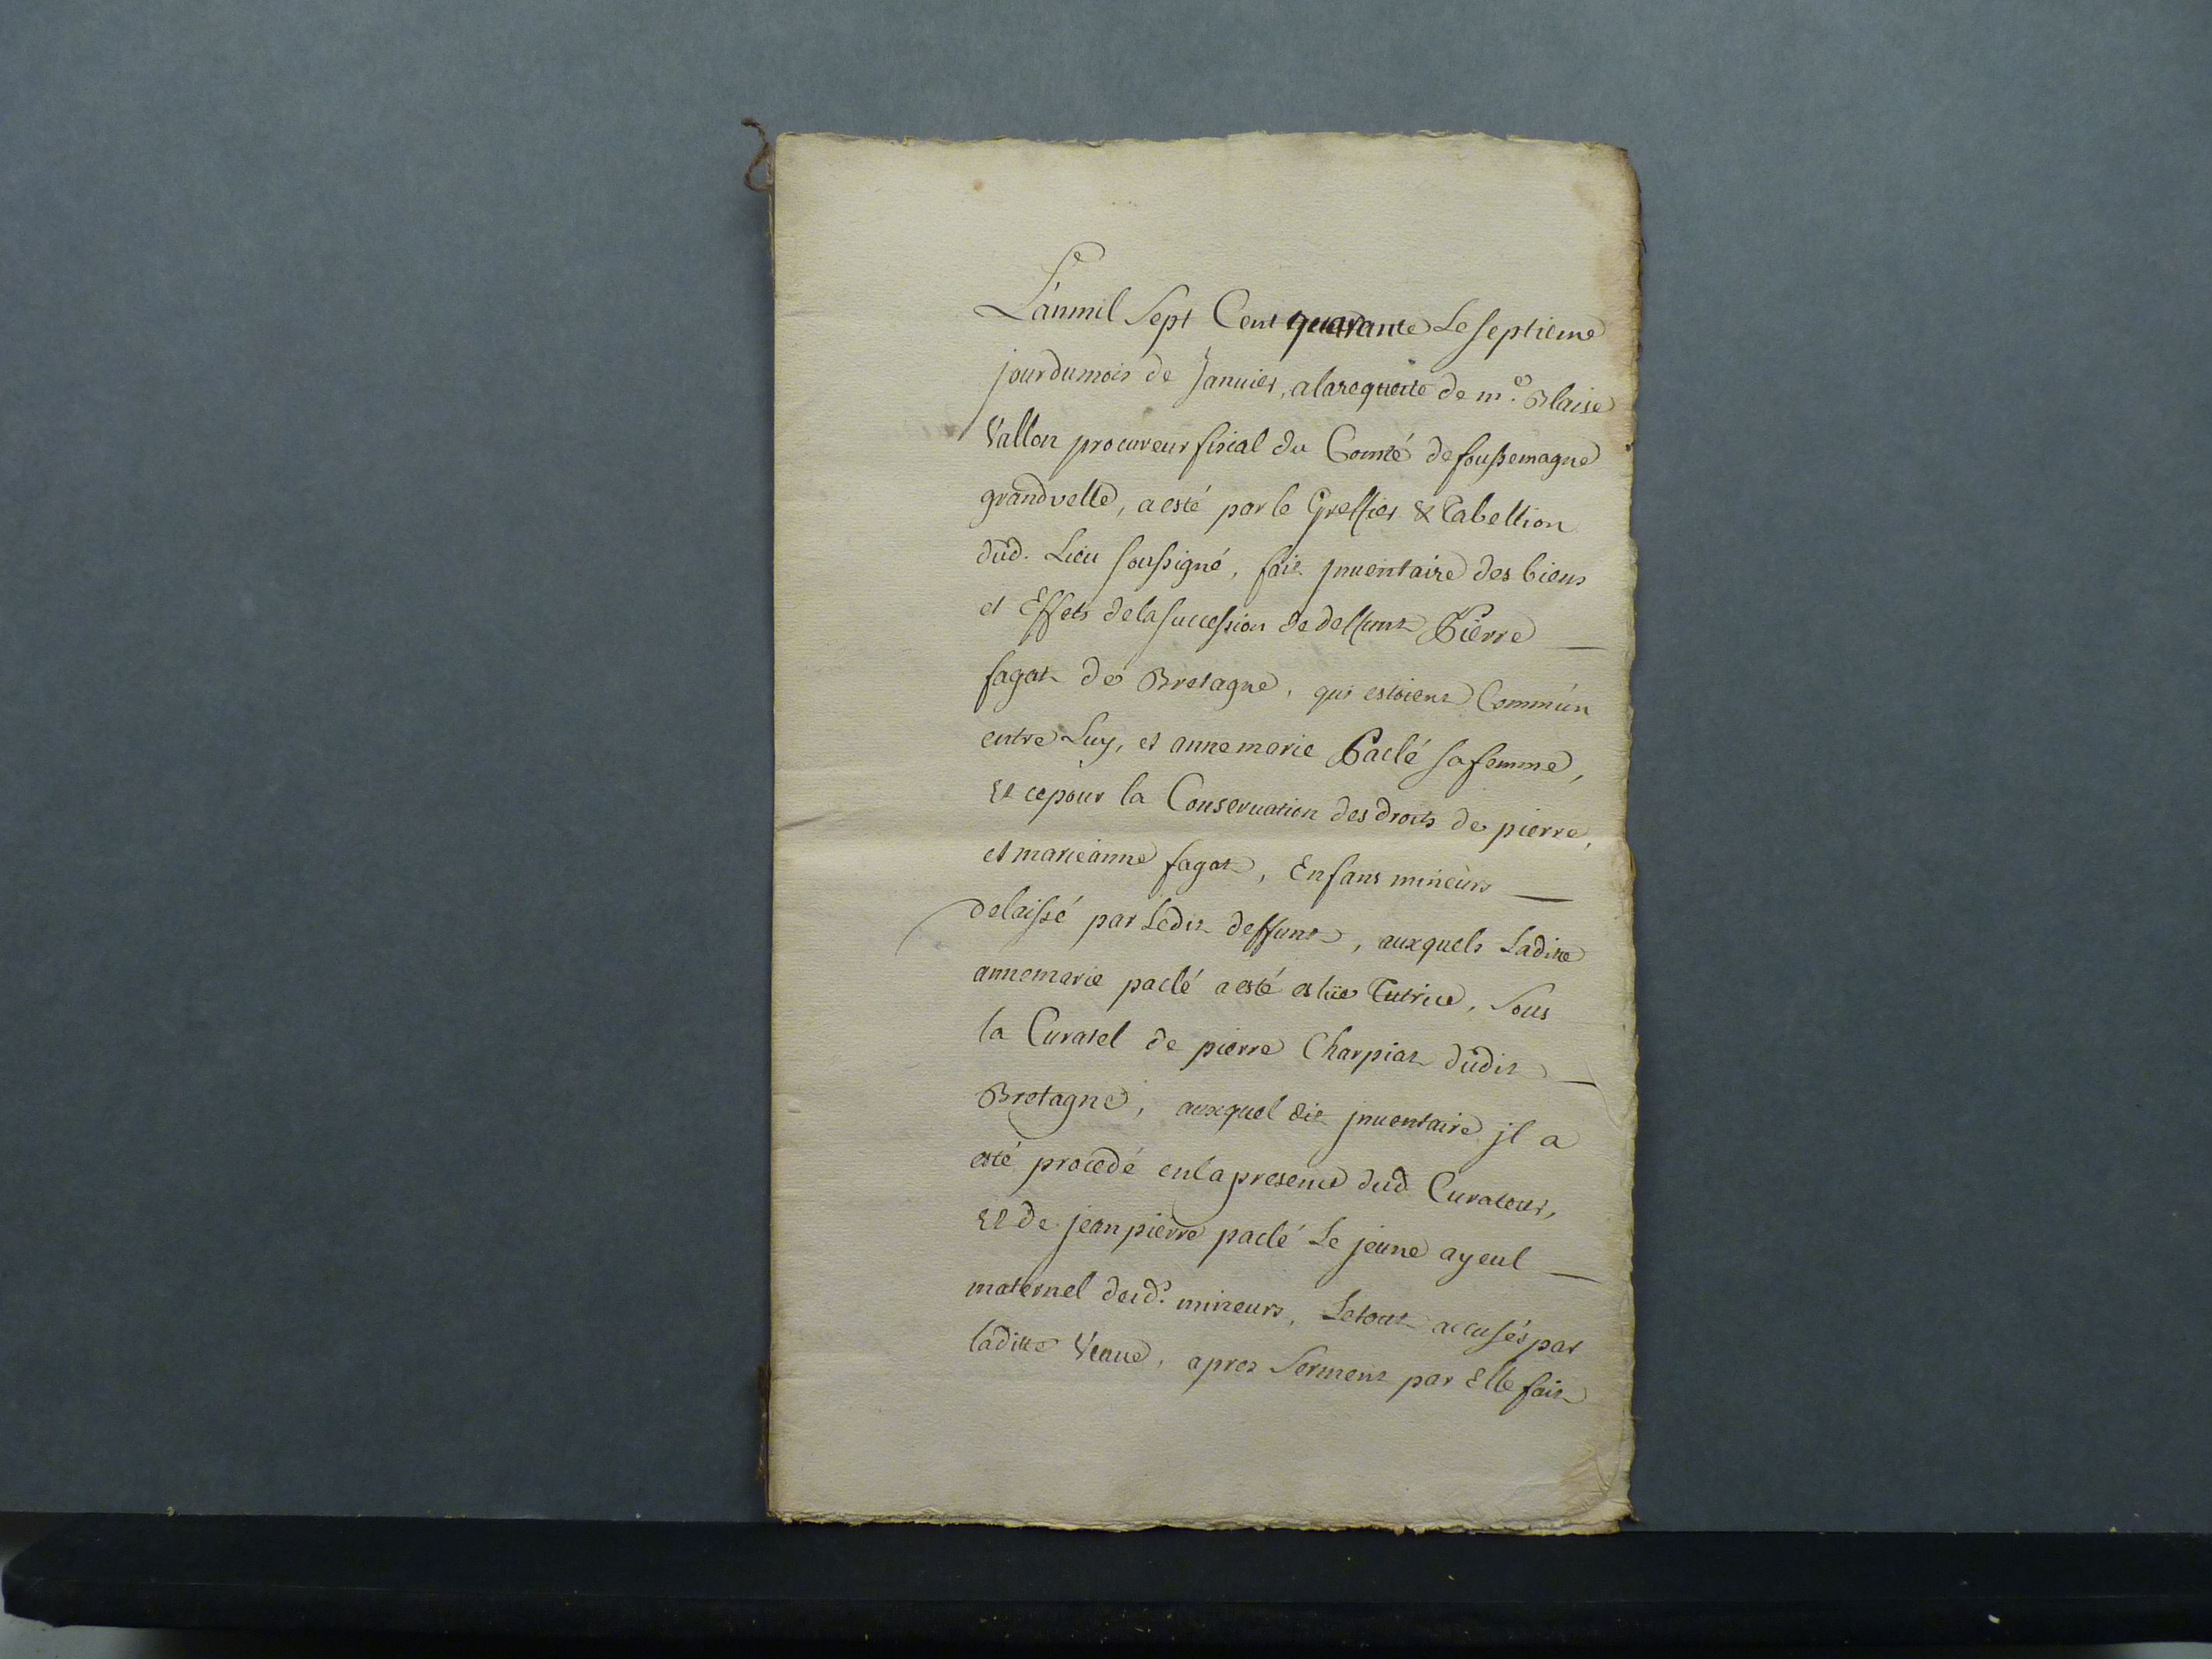 L'anmil Sept Cent quarante Le septieme
jour du mois de Januier, a la requette de m.e Blaise
Vallon procureur fiscal du Comté de foussemagne
grandvelle, a esté par le Greffier & Tabellion
dud. Lieu soussigné, fait jnuentaire des biens
et Effets de la succession de deffunt Pierre
fagat de Bretagne, qui estoient Commún
entre Luy, et anne marie Paclé sa femme,
Et ce pour la Conseruation des droits de pierre,
et marieanne fagat, Enfans mineurs
delaissé par Ledit deffunt, auxquels Ladite
annemarie paclé a esté eslüe Tutrice, Sous
la Curatel de pierre Charpiat dudit
Bretagne, auxquel dit jnuentaire jl a
esté procedé en la presence dud Curateur,
Et de jean pierre paclé Le jeune ayeul
maternel desd. mineurs, Le tout accusés par
laditte Veuue, apres Serment par Elle fait